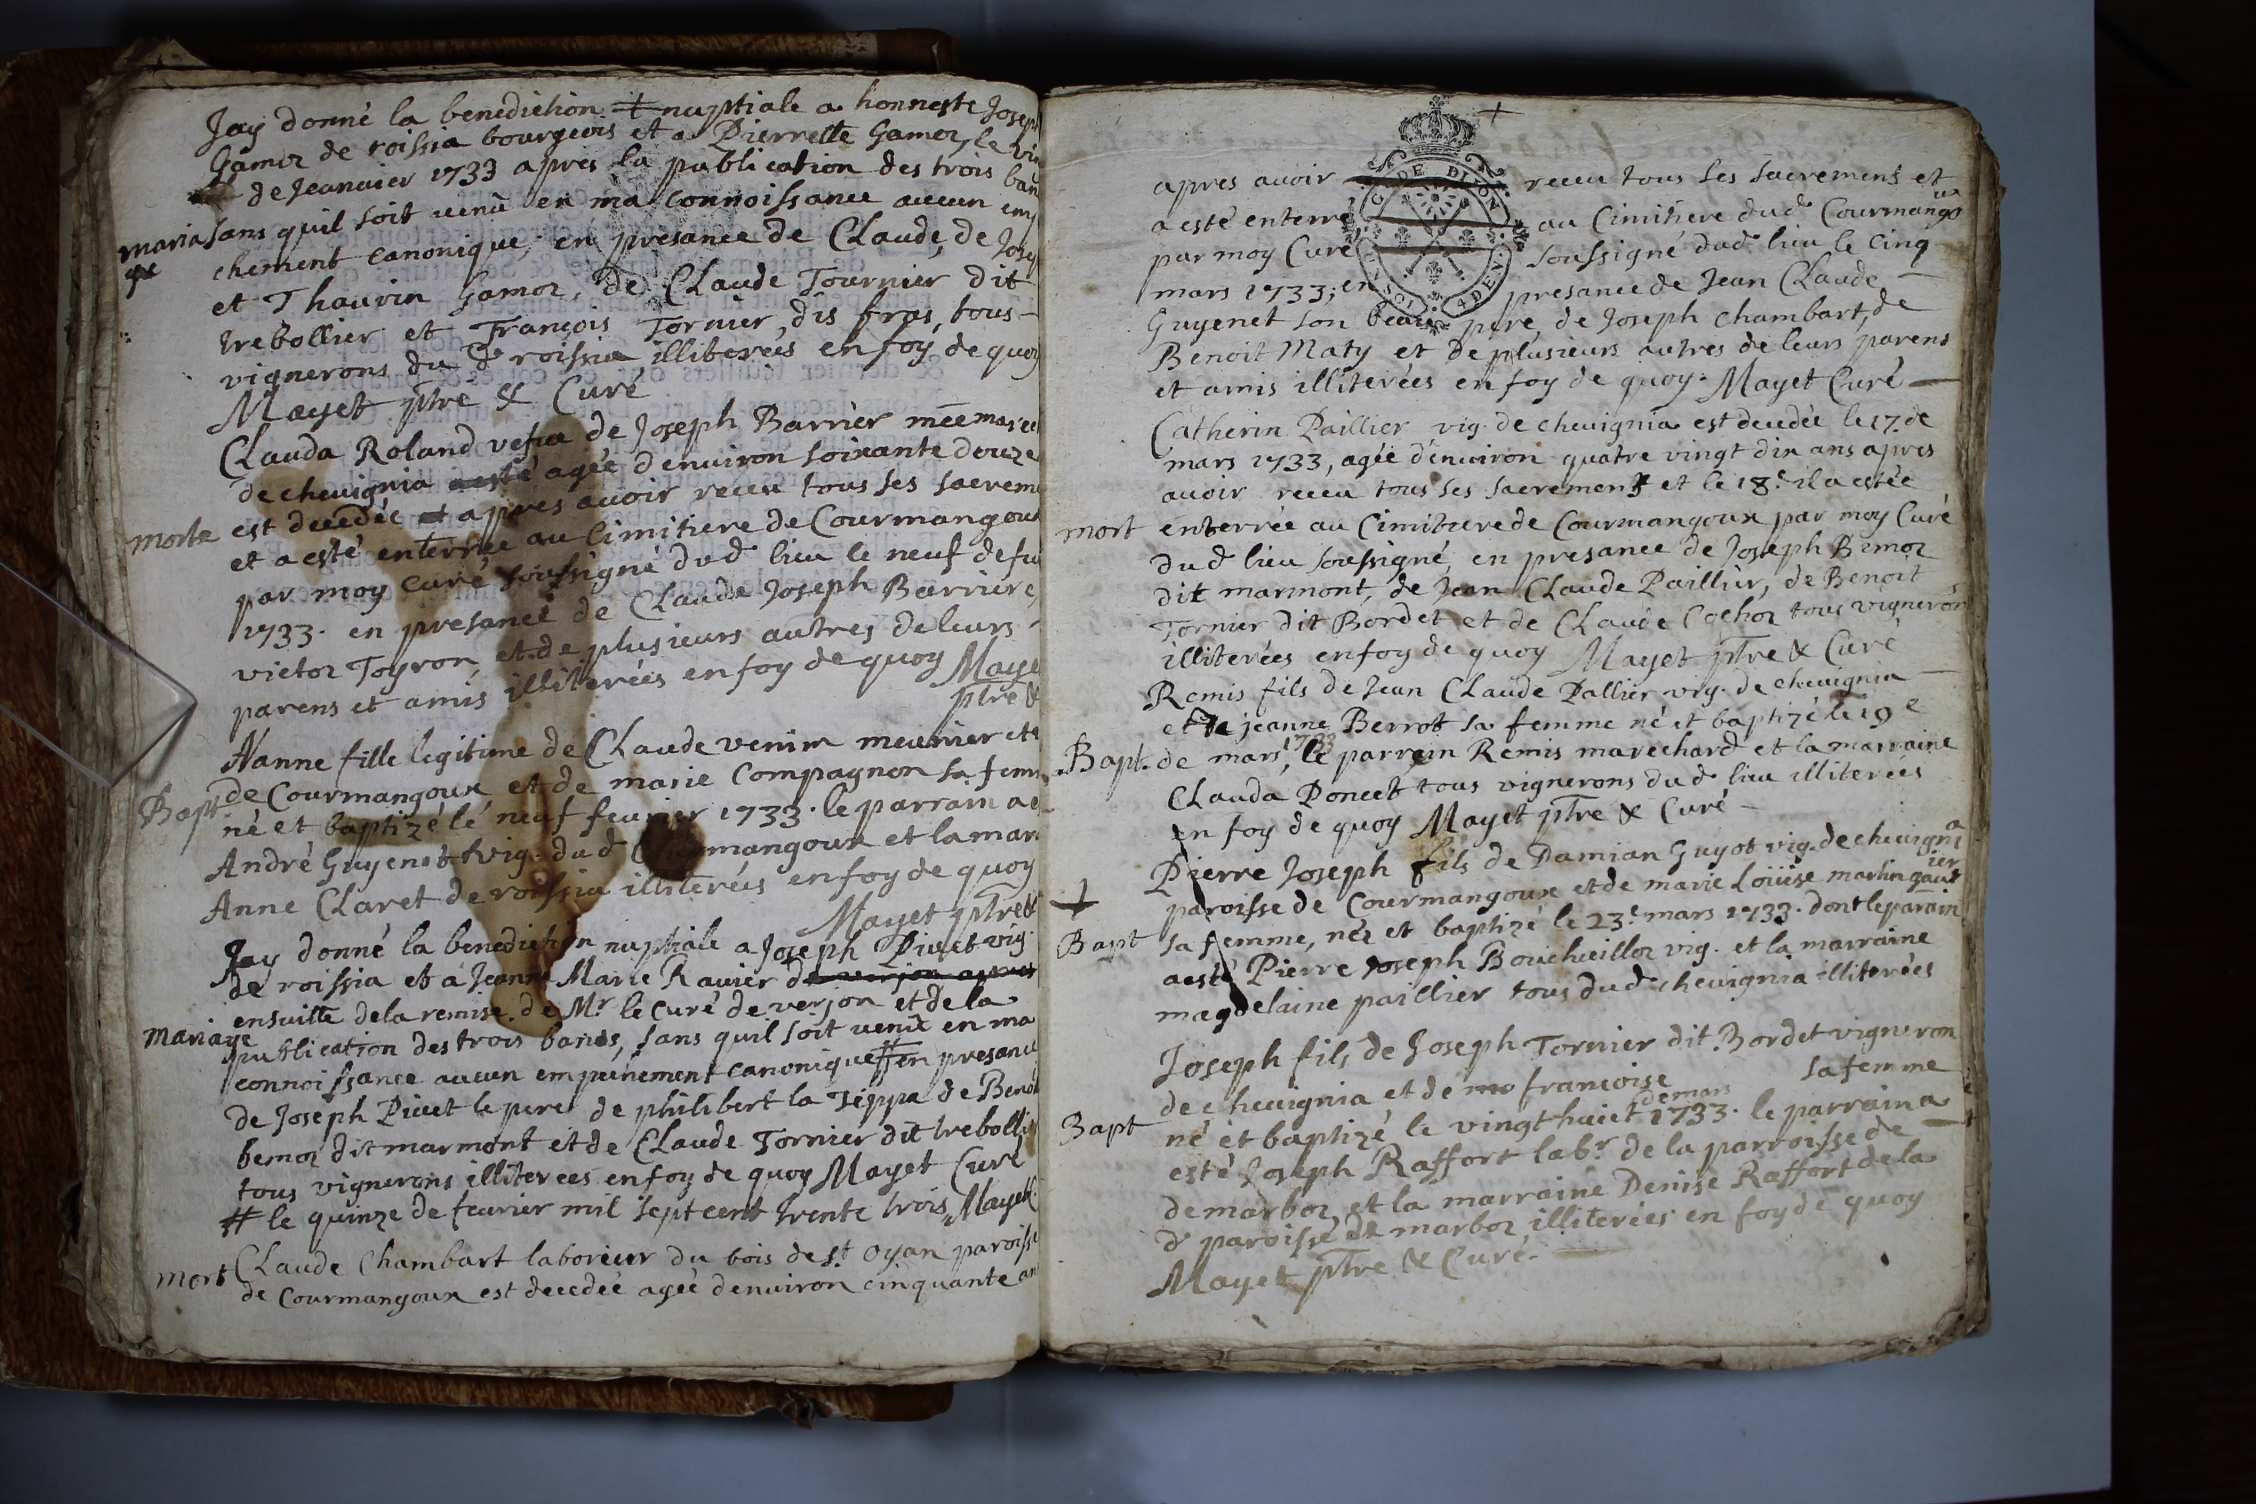 Jay donné la benediction nuptiale a honneste Joseph
Gamoz de roissia bourgeois et a Pierrette Gamoz, le
de Jeanuier 1733 apres la publication des trois ban
mariage
sans quil soit venü en ma connoissance aucun emp
chement canonique, en presance de Claude, de Jose
et Thauvin Gamoz, de Claude Tournier dit
trebollier et François Tornier dis fras, tous
vignerons du d roissia illiterées en foy de quoy
Mayet ptre & Curé
Clauda Roland vefue de Joseph Barrier
de cheuignia a esté agée denuiron soixante douze
morte
est decedée et apres auoir receu tous ses sacreme
et a esté enterrée au Cimitiere de Courmangoux
par moy curé soussigné dud lieu le neuf de
1733. en presance de Claude Joseph Barriere,
victor Toyron, et de plusieurs autres de leurs
parens et amis illiterées en foy de quoy Maye
ptre &
Nanne fille legitime de Claude venim meunier
Bapt
de Courmangoux et de marie Compagnon sa fem
né et baptizé lé neuf feurier 1733. le parrain a
André Guyenet vig. du d mangoux et la mar
Anne Claret de roissia illiterées en foy de quoy
Mayet ptre &
Jay donné la benediction nuptiale a Joseph Piuet vig.
de roissia et a Jeanne Marie Rauier de verjon apres
ensuitte de la remise de Mr. le Curé de verjon et de la
Mariage
publication des trois bans, sans quil soit venü en ma
connoissance aucun empeinement canonique # en presance
de Joseph Piuet le pere de philibert la Teppe de Benoi
bemoz dit marmont et de Claude Tornier dit trebollier
tous vignerons illiterees en foy de quoy Mayet Curé
# le quinze de feurier mil sept cent trente trois, Mayet
Claude Chambart laboreur du bois de st. oyan paroisse
mort
de Courmangoux est decedée agée denuiron cinquante an
apres auoir receu tous ses sacremens et
a esté enterré au Cimitiere dud Courmangoux
par moy Curé soussigné dud lieu le cinq
mars 1733; en presance de Jean Claude
G. DE DIJON
Guyenet son beau pere, de Joseph chambart, de
Benoit Maty et de plusieurs autres de leurs parens
et amis illiterées en foy de quoy. Mayet Curé
Catherin Paillier vig. de cheuignia est decedée le 17. de
mars 1733, agée denuiron quatre vingt dix ans apres
auoir receu tous ses sacremens et le 18e. il a estée
mort
enterrée au Cimitiere de Courmangoux par moy Curé
dud lieu soussigné, en presance de Joseph Bemoz
dit marmont, de Jean Claude Paillier, de Benoit
Tornier dit Bordet et de Claude Cochoz tous vignerons
illiterées en foy de quoy Mayet ptre & Curé
Remis fils de Jean Claude Pallier vig. de cheuignia
et de jeanne Berrot sa femme né et baptizé le 19e
Bapt.
de mars 1733, le parrain Remis marechard et la marraine
Clauda Poncet tous vignerons dud lieu illiterées
en foy de quoy Mayet ptre & Curé
Pierre Joseph fils de Damian Guyot vig. de cheuignia
paroisse de Courmangoux et de marie Loüise
Bapt
sa femme, néz et baptizé le 23e. mars 1733. dont le parrain
a esté Pierre Joseph Bouchuilloz vig. et la marraine
magdelaine paillier tous dud cheuignia illiterées
Joseph fils de Joseph Tornier dit Bordet vigneron
de cheuignia et de françoise sa femme
Bapt
né et baptizé le vingt huict de mars 1733. le parrain a
esté Joseph Raffort labr. de la parroisse de
de marboz et la marraine Denise Raffort de la
d paroisse de marboz illiterées en foy de quoy
Mayet ptre & Curé.